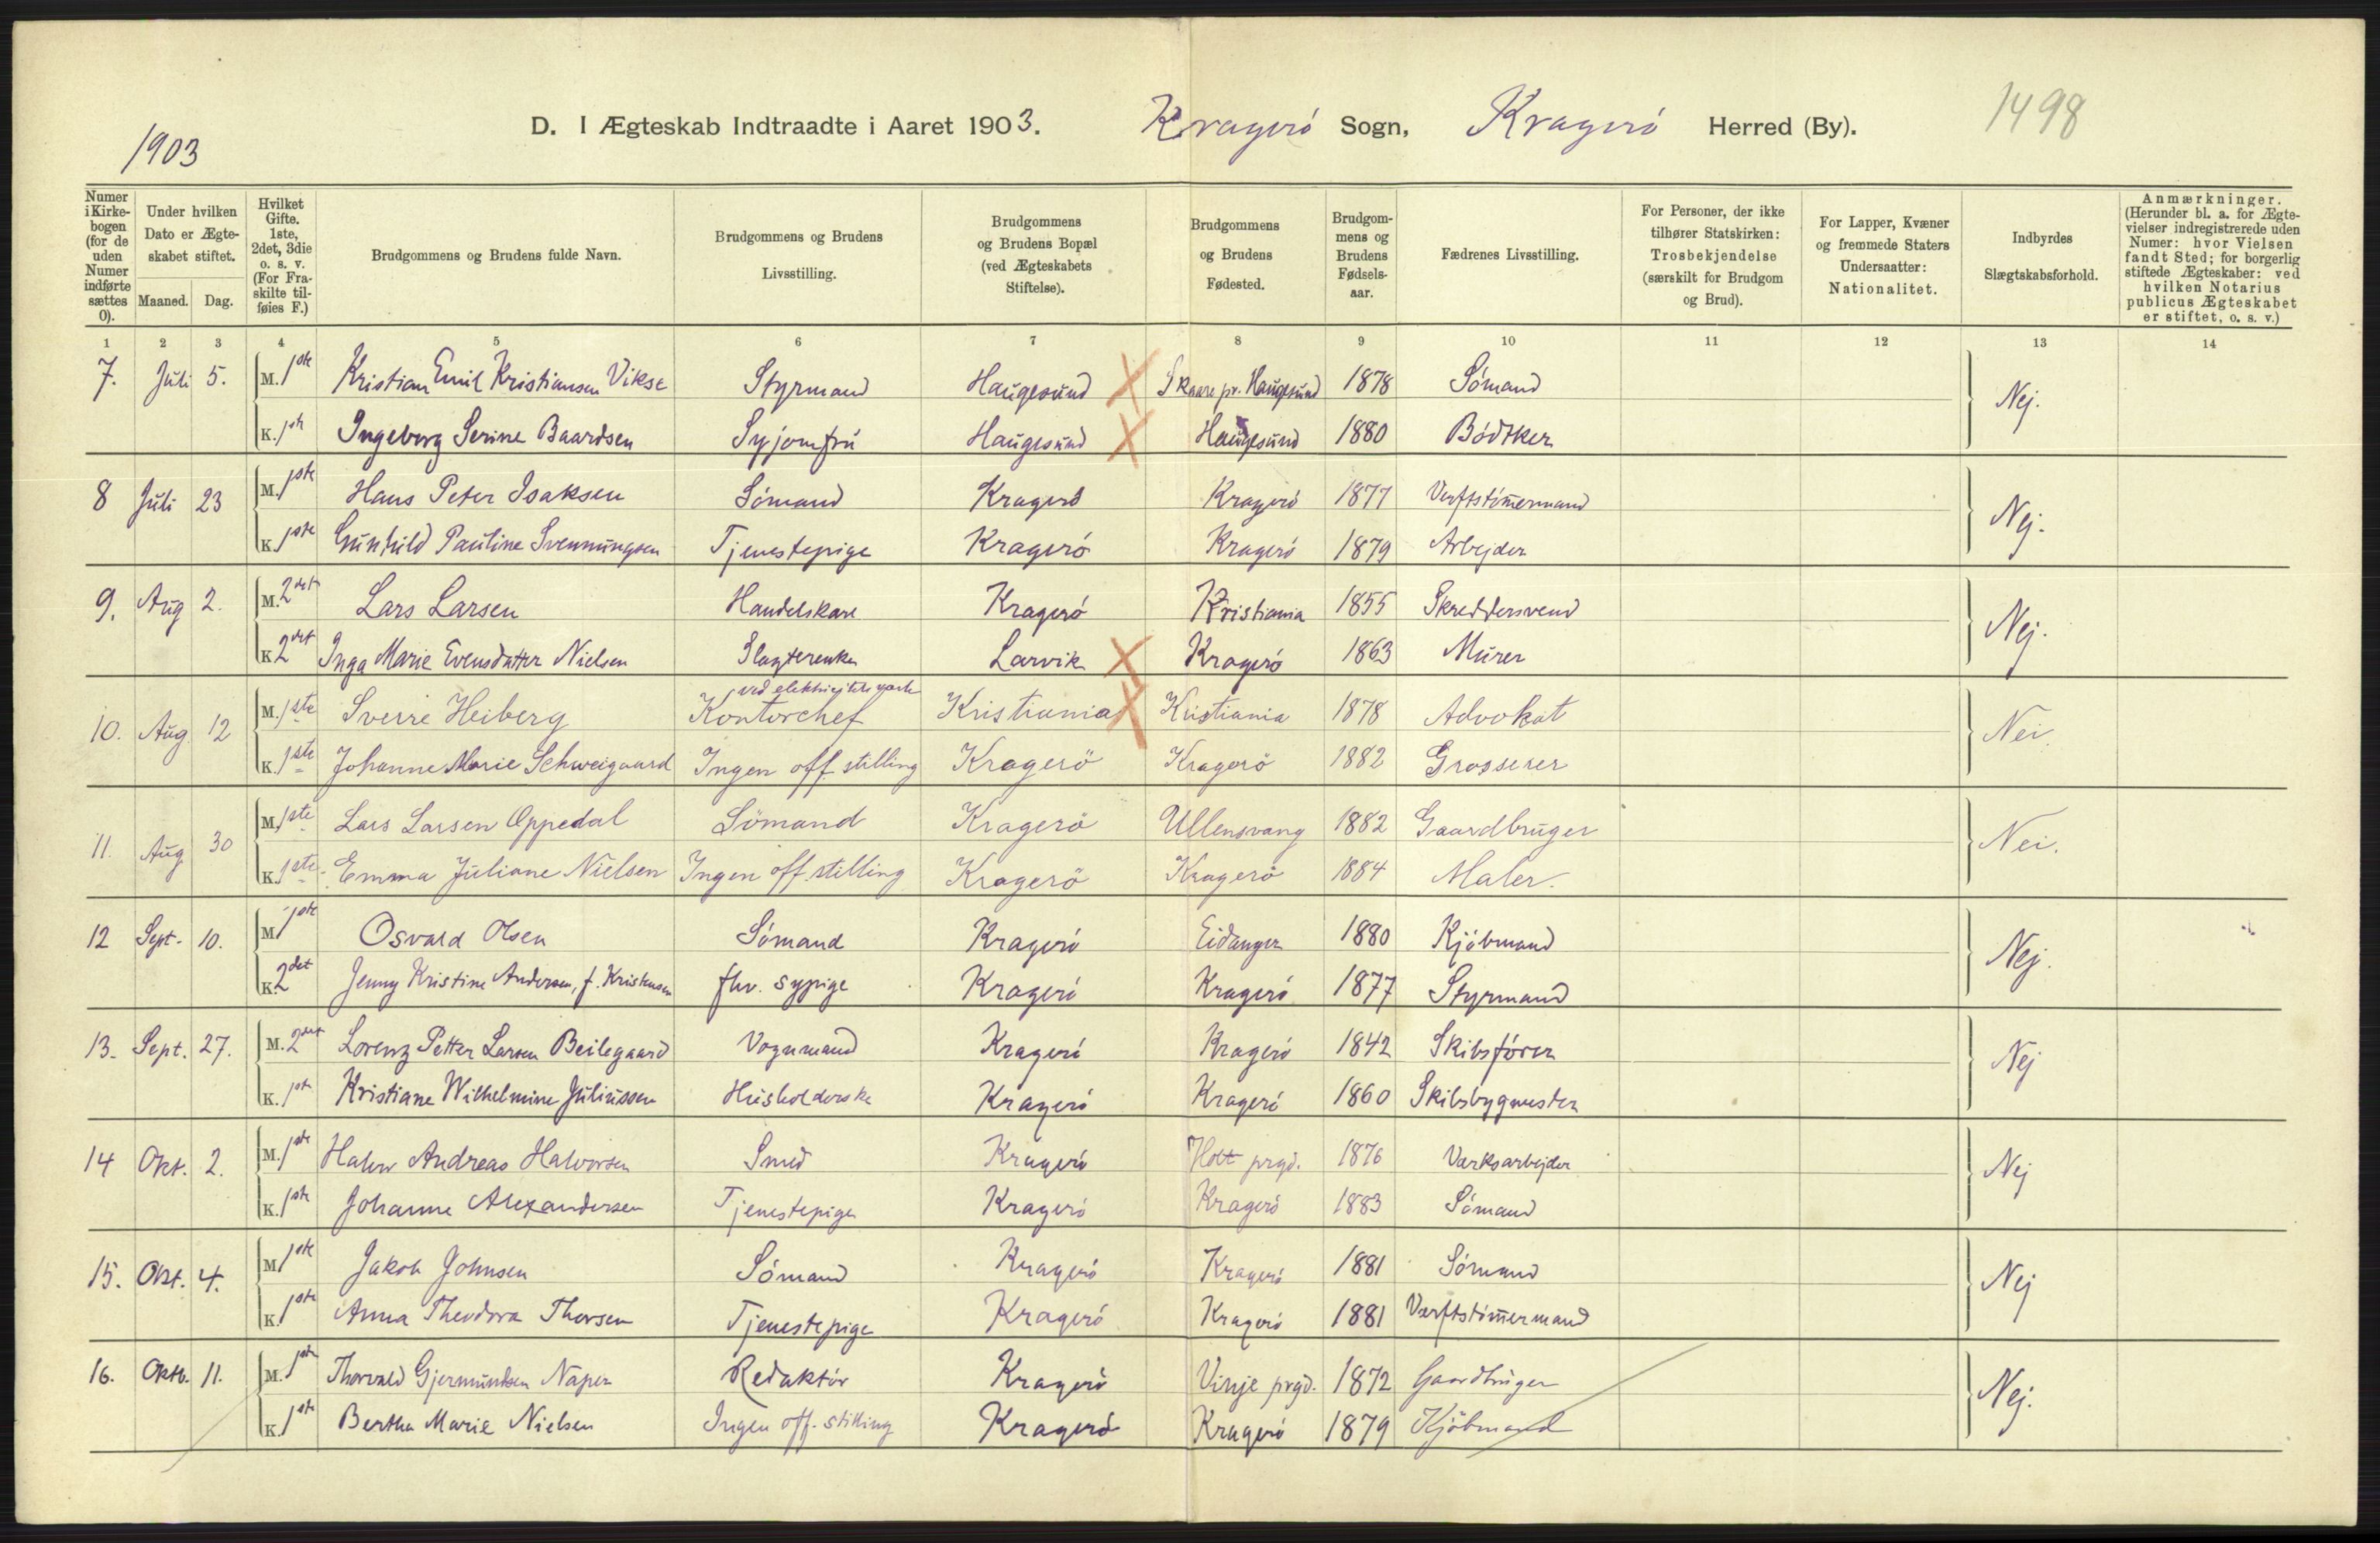 1903
D. I Ægteskab Indtraadte i Aaret 1903. Kragerö Sogn, Kragerö Herred (By). 1498
Numer i Kirkebogen (for de uden Numer indførte sættes 0).
Under hvilken Dato er Ægteskabet stiftet.
Maaned. Dag.
Hvilket Gifte. 1ste, 2det, 3die o. s. v. (For Fraskilte tilføies F.)
Brudgommens og Brudens fulde Navn.
Brudgommens og Brudens Livsstilling.
Brudgommens og Brudens Bopæl (ved Ægteskabets Stiftelse).
Brudgommens og Brudens Fødested.
Brudgommens og Brudens Fødselsaar.
Fædrenes Livsstilling.
For Personer, der ikke tilhører Statskirken: Trosbekjendelse (særskilt for Brudgom og Brud).
For Lapper, Kvæner og fremmede Staters Undersaatter: Nationalitet.
Indbyrdes Slægtskabsforhold.
Anmærkninger. (Herunder bl. a. for Ægtevielser indregistrerede uden Numer: hvor Vielsen fandt Sted; for borgerlig stiftede Ægteskaber: ved hvilken Notarius publicus Ægteskabet er stiftet, o. s. v.)
1 2 3 4 5 6 7 8 9 10 11 12 13 14
7. Juli 5. M. 1ste Kristian Emil Kristiansen Vikse Styrmand Haugesund Skaare pr. Haugesund 1878 Sömand Nej.
K. 1ste Ingeborg Serine Baardsen Syjomfru Haugesund Haugesund 1880 Bödtker
8 Juli 23 M. 1ste Hans Peter Isaksen Sömand Kragerö Kragerö 1877 Verftstömermand Nej.
K. 1ste Gunhild Pauline Svennungsen Tjenestepige Kragerö Kragerö 1879 Arbejder
9. Aug 2. M. 2det Lars Larsen Handelskare Kragerö Kristiania 1855 Skreddersvend Nej.
K. 2det Inga Marie Evensdatter Nielsen Slagterenke Larvik Kragerö 1863 Murer
ved elektricitetsværk
10. Aug 12 M. 1ste Sverre Heiberg Kontorchef Kristiania Kristiania 1878 Advokat Nei.
K. 1ste Johanne Marie Schweigaard Ingen off. stilling Kragerö Kragerö 1882 Grosserer
11. Aug 30 M. 1ste Lars Larsen Oppedal Sömand Kragerö Ullensvang 1882 Gaardbruger Nei.
K. 1ste Emma Juliane Nielsen Ingen off. stilling Kragerö Kragerö 1884 Maler.
12 Sept. 10. M. 1ste Osvald Olsen Sömand Kragerö Eidanger 1880 Kjöbmand Nej.
K. 2det Jenny Kristine Andersen, f. Kristensen fhv. sypige Kragerö Kragerö 1877 Styrmand
13. Sept. 27. M. 2det Lorenz Petter Larsen Beilegaard Vognmand Kragerö Kragerö 1842 Skibsförer Nej
K. 1ste Kristiane Wilhelmine Juliussen Husholderske Kragerö Kragerö 1860 Skibsbygmester
14 Okt. 2. M. 1ste Halvor Andreas Halvorsen Smed Kragerö Holt prgd. 1876 Værksarbejder Nej
K. 1ste Johanne Alexandersen Tjenestepige Kragerö Kragerö 1883 Sömand
15. Okt. 4. M. 1ste Jakob Johnsen Sömand Kragerö Kragerö 1881 Sömand Nej
K. 1ste Anna Theodora Thorsen Tjenestepige Kragerö Kragerö 1881 Værftstömermand
16. Oktb. 11. M. 1ste Thorvald Gjermundsen Naper Redaktör Kragerö Vinje prgd. 1872 Gaardbruger Nej.
K. 1ste Bertha Marie Nielsen Ingen off. stilling Kragerö Kragerö 1879 Kjöbmand